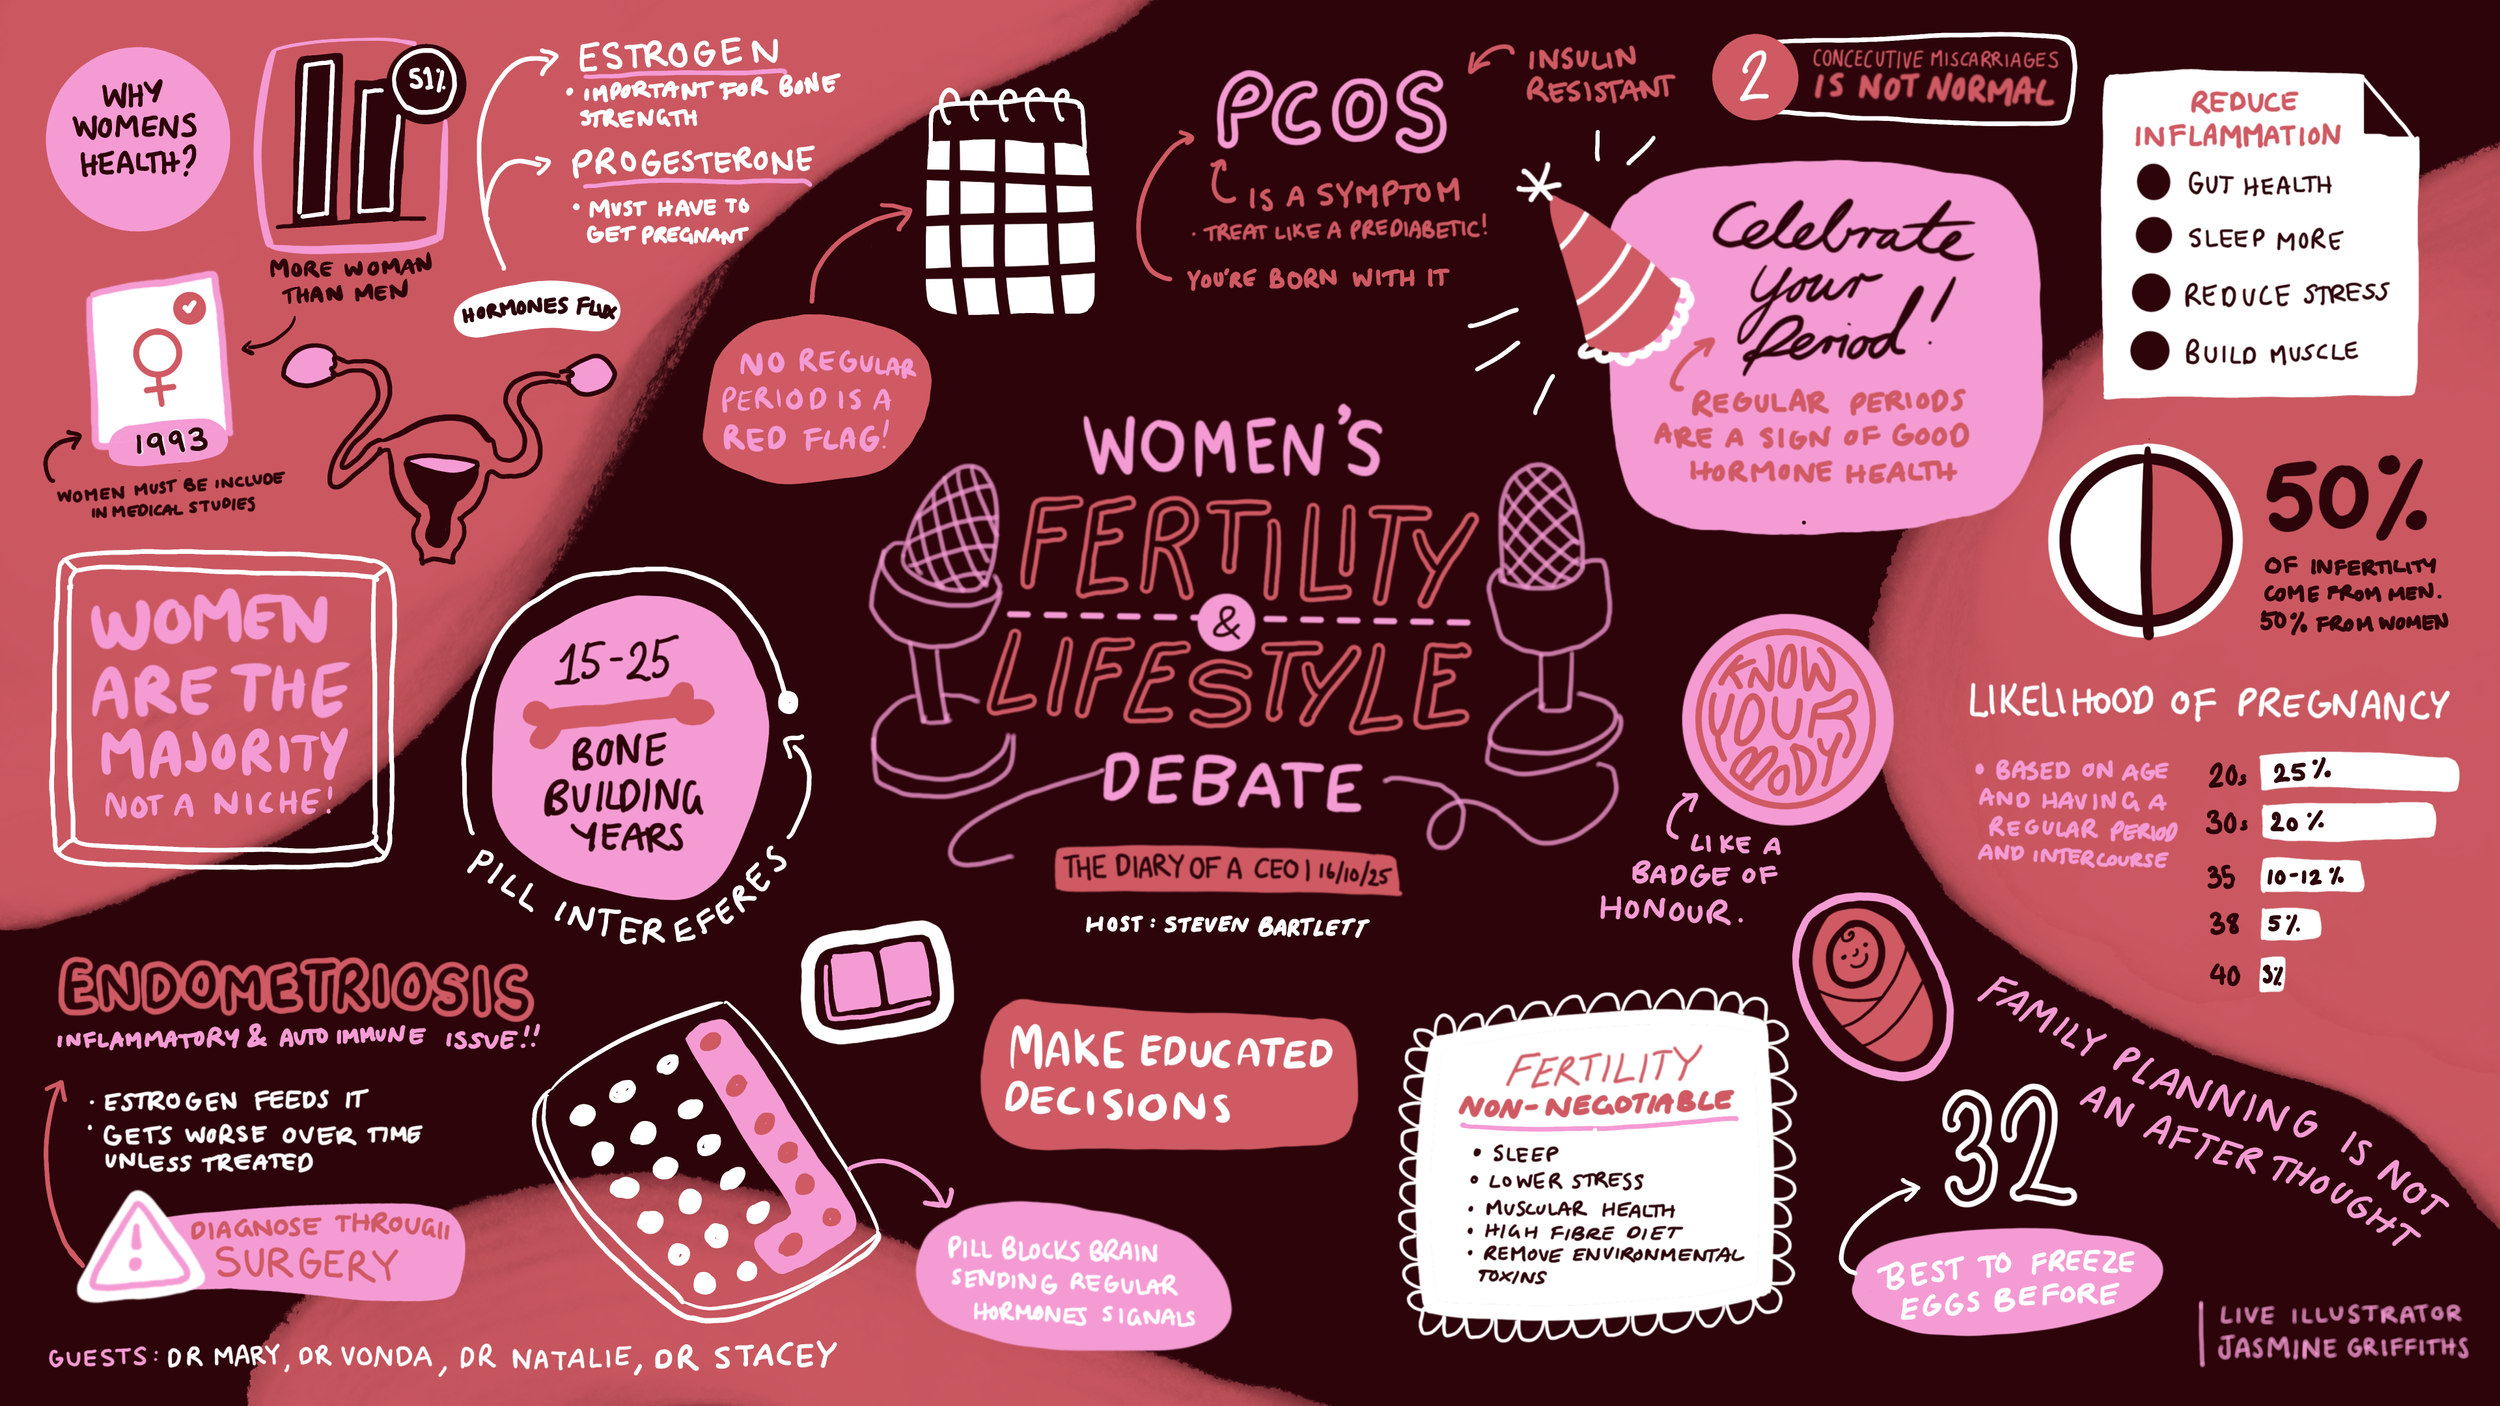 WHY
WOMENS
HEALTH?
51%
MORE WOMAN
THAN MEN
1993
WOMEN MUST BE INCLUDE
IN MEDICAL STUDIES
ESTROGEN
• IMPORTANT FOR BONE
STRENGTH
PROGESTERONE
• MUST HAVE TO
GET PREGNANT
HORMONES FLUX
NO REGULAR
PERIOD IS A
RED FLAG!
PCOS
INSULIN
RESISTANT
IS A SYMPTOM
• TREAT LIKE A PREDIABETIC!
YOU'RE BORN WITH IT
2
CONCECUTIVE MISCARRIAGES
IS NOT NORMAL
Celebrate
your
Period!
REGULAR PERIODS
ARE A SIGN OF GOOD
HORMONE HEALTH
REDUCE
INFLAMMATION
GUT HEALTH
SLEEP MORE
REDUCE STRESS
BUILD MUSCLE
WOMEN
ARE THE
MAJORITY
NOT A NICHE!
15-25
BONE
BUILDING
YEARS
PILL INTEREFERES
WOMEN'S
FERTILITY
&
LIFESTYLE
DEBATE
THE DIARY OF A CEO | 16/10/25
HOST: STEVEN BARTLETT
KNOW
YOUR
BODY
LIKE A
BADGE OF
HONOUR.
50%
OF INFERTILITY
COME FROM MEN.
50% FROM WOMEN
LIKELIHOOD OF PREGNANCY
• BASED ON AGE
AND HAVING A
REGULAR PERIOD
AND INTERCOURSE
20s 25%
30s 20%
35 10-12%
38 5%
40 3%
ENDOMETRIOSIS
INFLAMMATORY & AUTO IMMUNE ISSUE!!
• ESTROGEN FEEDS IT
• GETS WORSE OVER TIME
UNLESS TREATED
!
DIAGNOSE THROUGH
SURGERY
PILL BLOCKS BRAIN
SENDING REGULAR
HORMONES SIGNALS
MAKE EDUCATED
DECISIONS
FERTILITY
NON-NEGOTIABLE
• SLEEP
• LOWER STRESS
• MUSCULAR HEALTH
• HIGH FIBRE DIET
• REMOVE ENVIRONMENTAL
TOXINS
FAMILY PLANNING IS NOT
AN AFTER THOUGHT
32
BEST TO FREEZE
EGGS BEFORE
GUESTS: DR MARY, DR VONDA, DR NATALIE, DR STACEY
LIVE ILLUSTRATOR
JASMINE GRIFFITHS